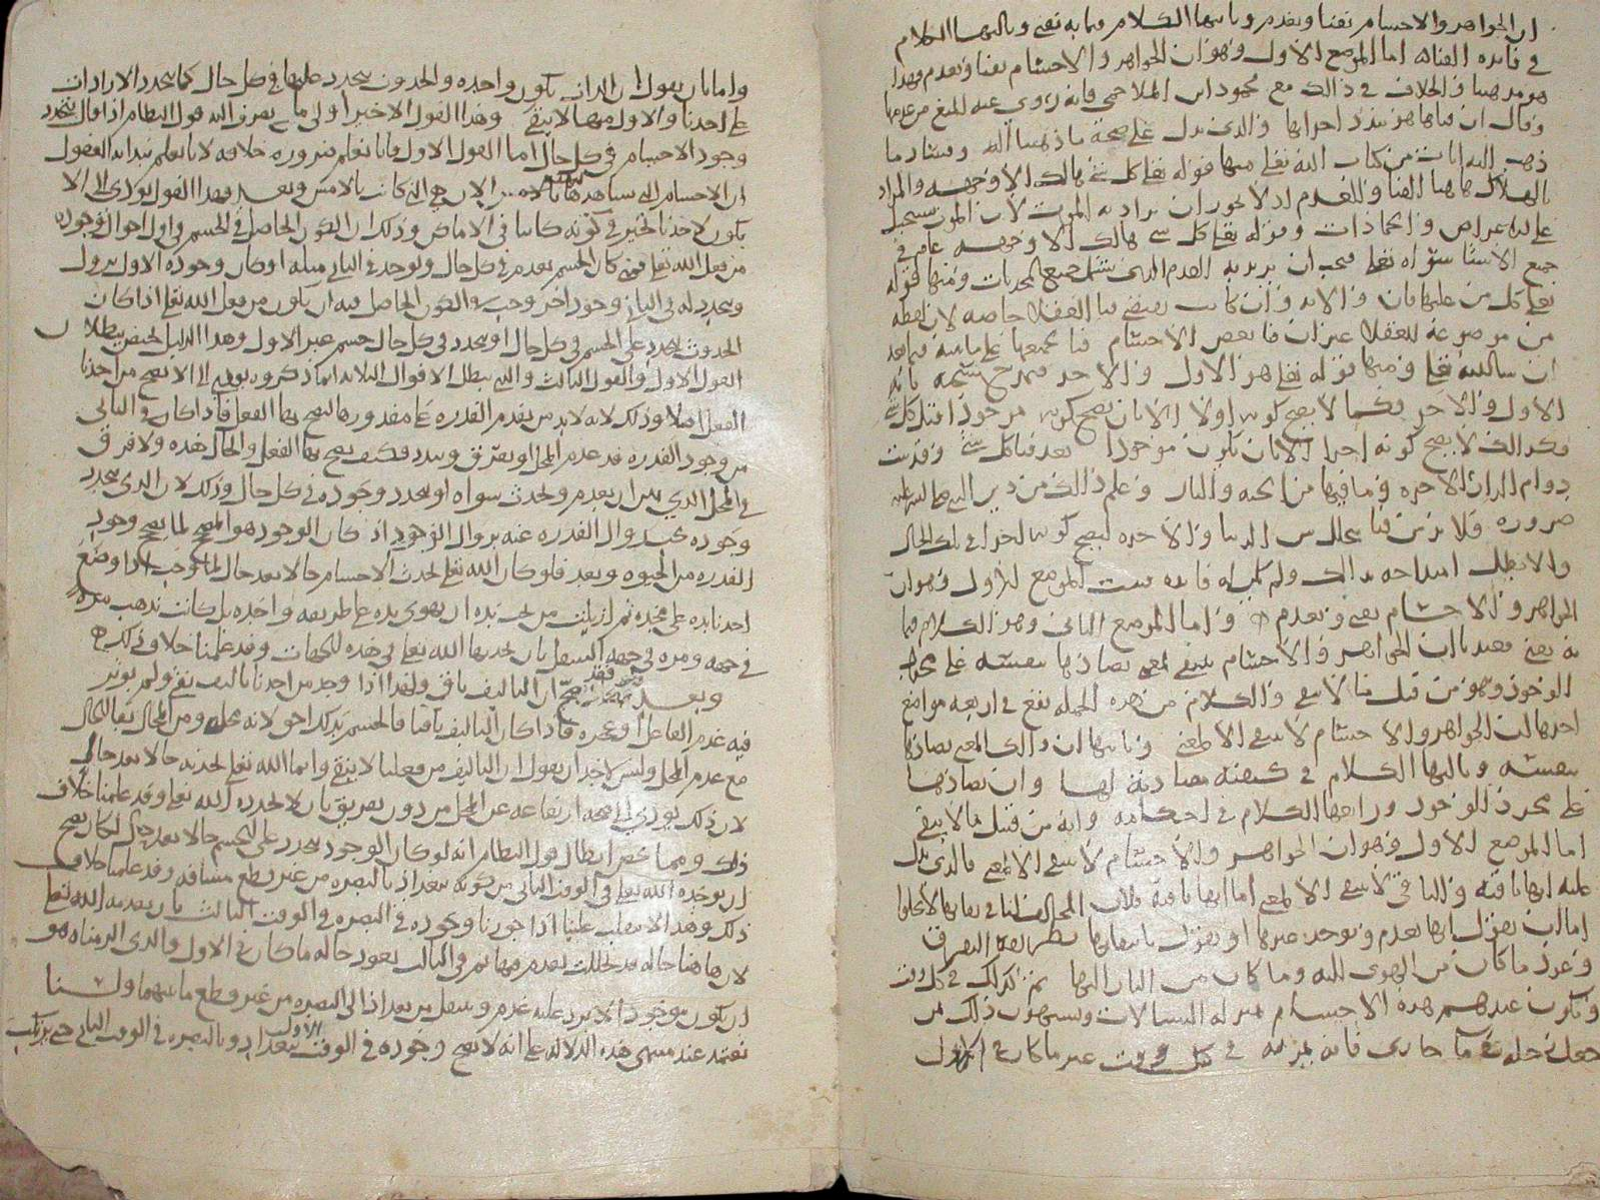 ان الجواهر والاجسام تفنا وتعدم وثانيها الكلام فيما به تفنى وثالثها الكلام
في فائده الفناء اما الموضع الاول وهو ان الجواهر والاجسام تفنا وتعدم فهذا
هو مذهبنا والخلاف في ذالك مع محمود ابن الملاحمي فانه روي عنه المنع من عدمها
وقال ان فناها هو تبدد اجزائها والذي يدل على صحة ما ذهبنا اليه
ذهب اليه ايات من كتاب الله تعلى منها قوله تعلى كل شي هالك الا وجهه والمراد
بالهلاك هاهنا الفنا والعدم اذ لا يجوز ان يراد به الموت لان الموت يستحيل
على الاعراض والجمادات وقوله تعلى كل شي هالك الا وجهه عام في
جميع الاشيا سواه تعلى فيجب ان يريد به العدم الذي يشمل جميع المحدثات ومنها قوله
تعلى كل من عليها فان والايه وان كانت تقتضي فنا العقلا خاصه لان لفظه
من موضوعه للعقلا غير ان فنا بعض الاجسام فنا لجميعها على ما نبينه فيما بعد
ان شا الله تعلى ومنها قوله تعلى هو الاول والاخر فتمدح سبحنه بانه
الاول والاخر وكما لا يصح كونه اولا الا بان يصح كونه موجودا قبل كل شي
فكذالك لا يصح كونه اخرا الا بان يكون موجودا بعد فنا كل شي وقد ثبت
دوام الدار الاخره وما فيها من الجنه والنار وعلم ذالك من دين النبي صلى الله عليه
ضروره فلا بد من فنا يتخلل بين الدنيا والاخره ليصح كونه اخرا في تلك الحال
والا بطل امتداحه بذالك ولم يكن له فائده فثبت الموضع الاول وهو ان
الجواهر والاجسام تفنى وتعدم واما الموضع الثاني وهو الكلام فيما
به تفنى فعندنا ان الجواهر والاجسام تنتفي لمعنى يضادها بنفسه على مجرد
الوجود وهو من قبيل ما لا يبقى والكلام من هذه الجمله يقع في اربعه مواضع
احدها ان الجواهر والاجسام لا تنتفي الا لمعنى وثانيها ان ذالك المعنى يضادها
بنفسه وثالثها الكلام في كيفيه مضادته لها وان يضادها
على مجرد الوجود ورابعها الكلام في احكامه وانه من قبيل ما لا يبقى
اما الموضع الاول وهو ان الجواهر والاجسام لا تنتفي الا لمعنى فالذي يدل
عليه انها باقيه والباقي لا ينتفي الا لمعنى اما انها باقيه فلان المخالف لنا في بقائها لا يخلوا
اما ان يقول انها تعدم ويوجد غيرها او يقول بانتفائها بطريقه التفرق
وعود ما كان من الهوى اليه وما كان من النار اليها ثم كذلك في كل وقت
وتكون عندهم هذه الاجسام بمنزله السيالات ويشبهون ذلك بمن
جعل رجله في ما جاري فانه يمر به في كل وقت غير ما كان في الاول
واما بان يقول ان الذات تكون واحده والحدوث يتجدد عليها في كل حال كما يتجدد الارادات
على احدنا والاول منها لا يبقى وهذا القول الاخير اولى ما يصرف اليه قول النظام اذا قال بتجدد
وجود الاجسام في كل حال اما القول الاول فانا نعلم ضروره خلافه لانا نعلم ببدايه العقول
ان الاجسام التي نشاهدها الان هي التي كانت بالامس وبعد فهذا القول يودي الى الا
يكون لاحدنا تخير في كونه كاينا في الاماكن وذلك ان الكون الحاصل في الجسم في اول احوال وجوده
من فعل الله تعلى فمتى كان الجسم يعدم في كل حال ويوجد في الثاني مثله او كان وجوده الاول يزول
ويتجدد له في الثاني وجود اخر وجب في الكون الحاصل فيه ان يكون من فعل الله تعلى اذا كان
الحدوث يتجدد على الجسم في كل حال او يتجدد في كل حال جسم غير الاول وهذا الدليل
القول الاول والقول الثالث والذي يبطل الاقوال الثلاثه ان ما ذكروه يودي الى الا يصح من احدنا
الفعل اصلا وذلك لانه لابد من تقدم القدره على مقدورها ليصح بها الفعل فاذا كان في الثاني
من وجود القدره قد عدم المحل او تفرق وتبدد فكيف يصح بها الفعل والحال هذه ولا فرق
في المحل الذي بين ان يعدم ويحدث سواه او يتجدد وجوده في كل حال وذلك لان الذي يتجدد
وجوده يجب زوال القدره عنه بزوال الوجود اذ كان الوجود هو المصحح لما يصحح وجود
القدره من الحيوه وبعد فلو كان الله تعلى يحدث الاجسام حالا بعد حال لما وجب اذا وضع
احدنا يده على مخده ثم ازيلت من تحت يده ان يهوي يده على طريقه واحده بل كانت تذهب مره
في جهه ومره في جهه السفل بان يحدثها الله تعلى في هذه الجهات وقد علمنا خلاف ذلك
وبعد فقد صح ان التاليف باقي ولهذا اذا وجد من احدنا تاليف بقي ولم يوثر
فيه عدم الفاعل او عجزه فاذا كان التاليف باقيا فالجسم بذلك احق لانه محله ومن المحال بقا الحال
مع عدم المحل وليس لاحد ان يقول ان التاليف من فعلنا لا يبقى وانما الله تعلى يحدثه حالا بعد حال
لان ذلك يودي الى صحه ارتفاعه عن المحل من دون تفريق بان لا يحدثه الله تعلى وقد علمنا خلاف
ذلك ومما يخص ابطال قول النظام انه لو كان الوجود يتجدد على الجسم حالا بعد حال لكان يصح
ان يوجده الله تعلى في الوقت الثاني من كونه ببغداذ بالبصره من غير قطع مسافه وقد علمنا خلاف
ذلك وهذا لا ينقلب علينا اذا جوزنا وجوده في البصره في الوقت الثالث بان يعدمه الله تعلى
لان هاهنا حاله قد تخللت يعدم فيها ثم في الثالث يعود حاله ما كان في الاول والذي الزمناه هو
ان يكون موجودا لا يرد عليه عدم وينتقل من بغداذ الى البصره من غير قطع ما بينهما ولسنا
نعتمد عند مشي هذه الدلاله على انه لا يصح وجوده في الوقت الاول ببغداد وبالبصره في الوقت الثاني حتى يركب